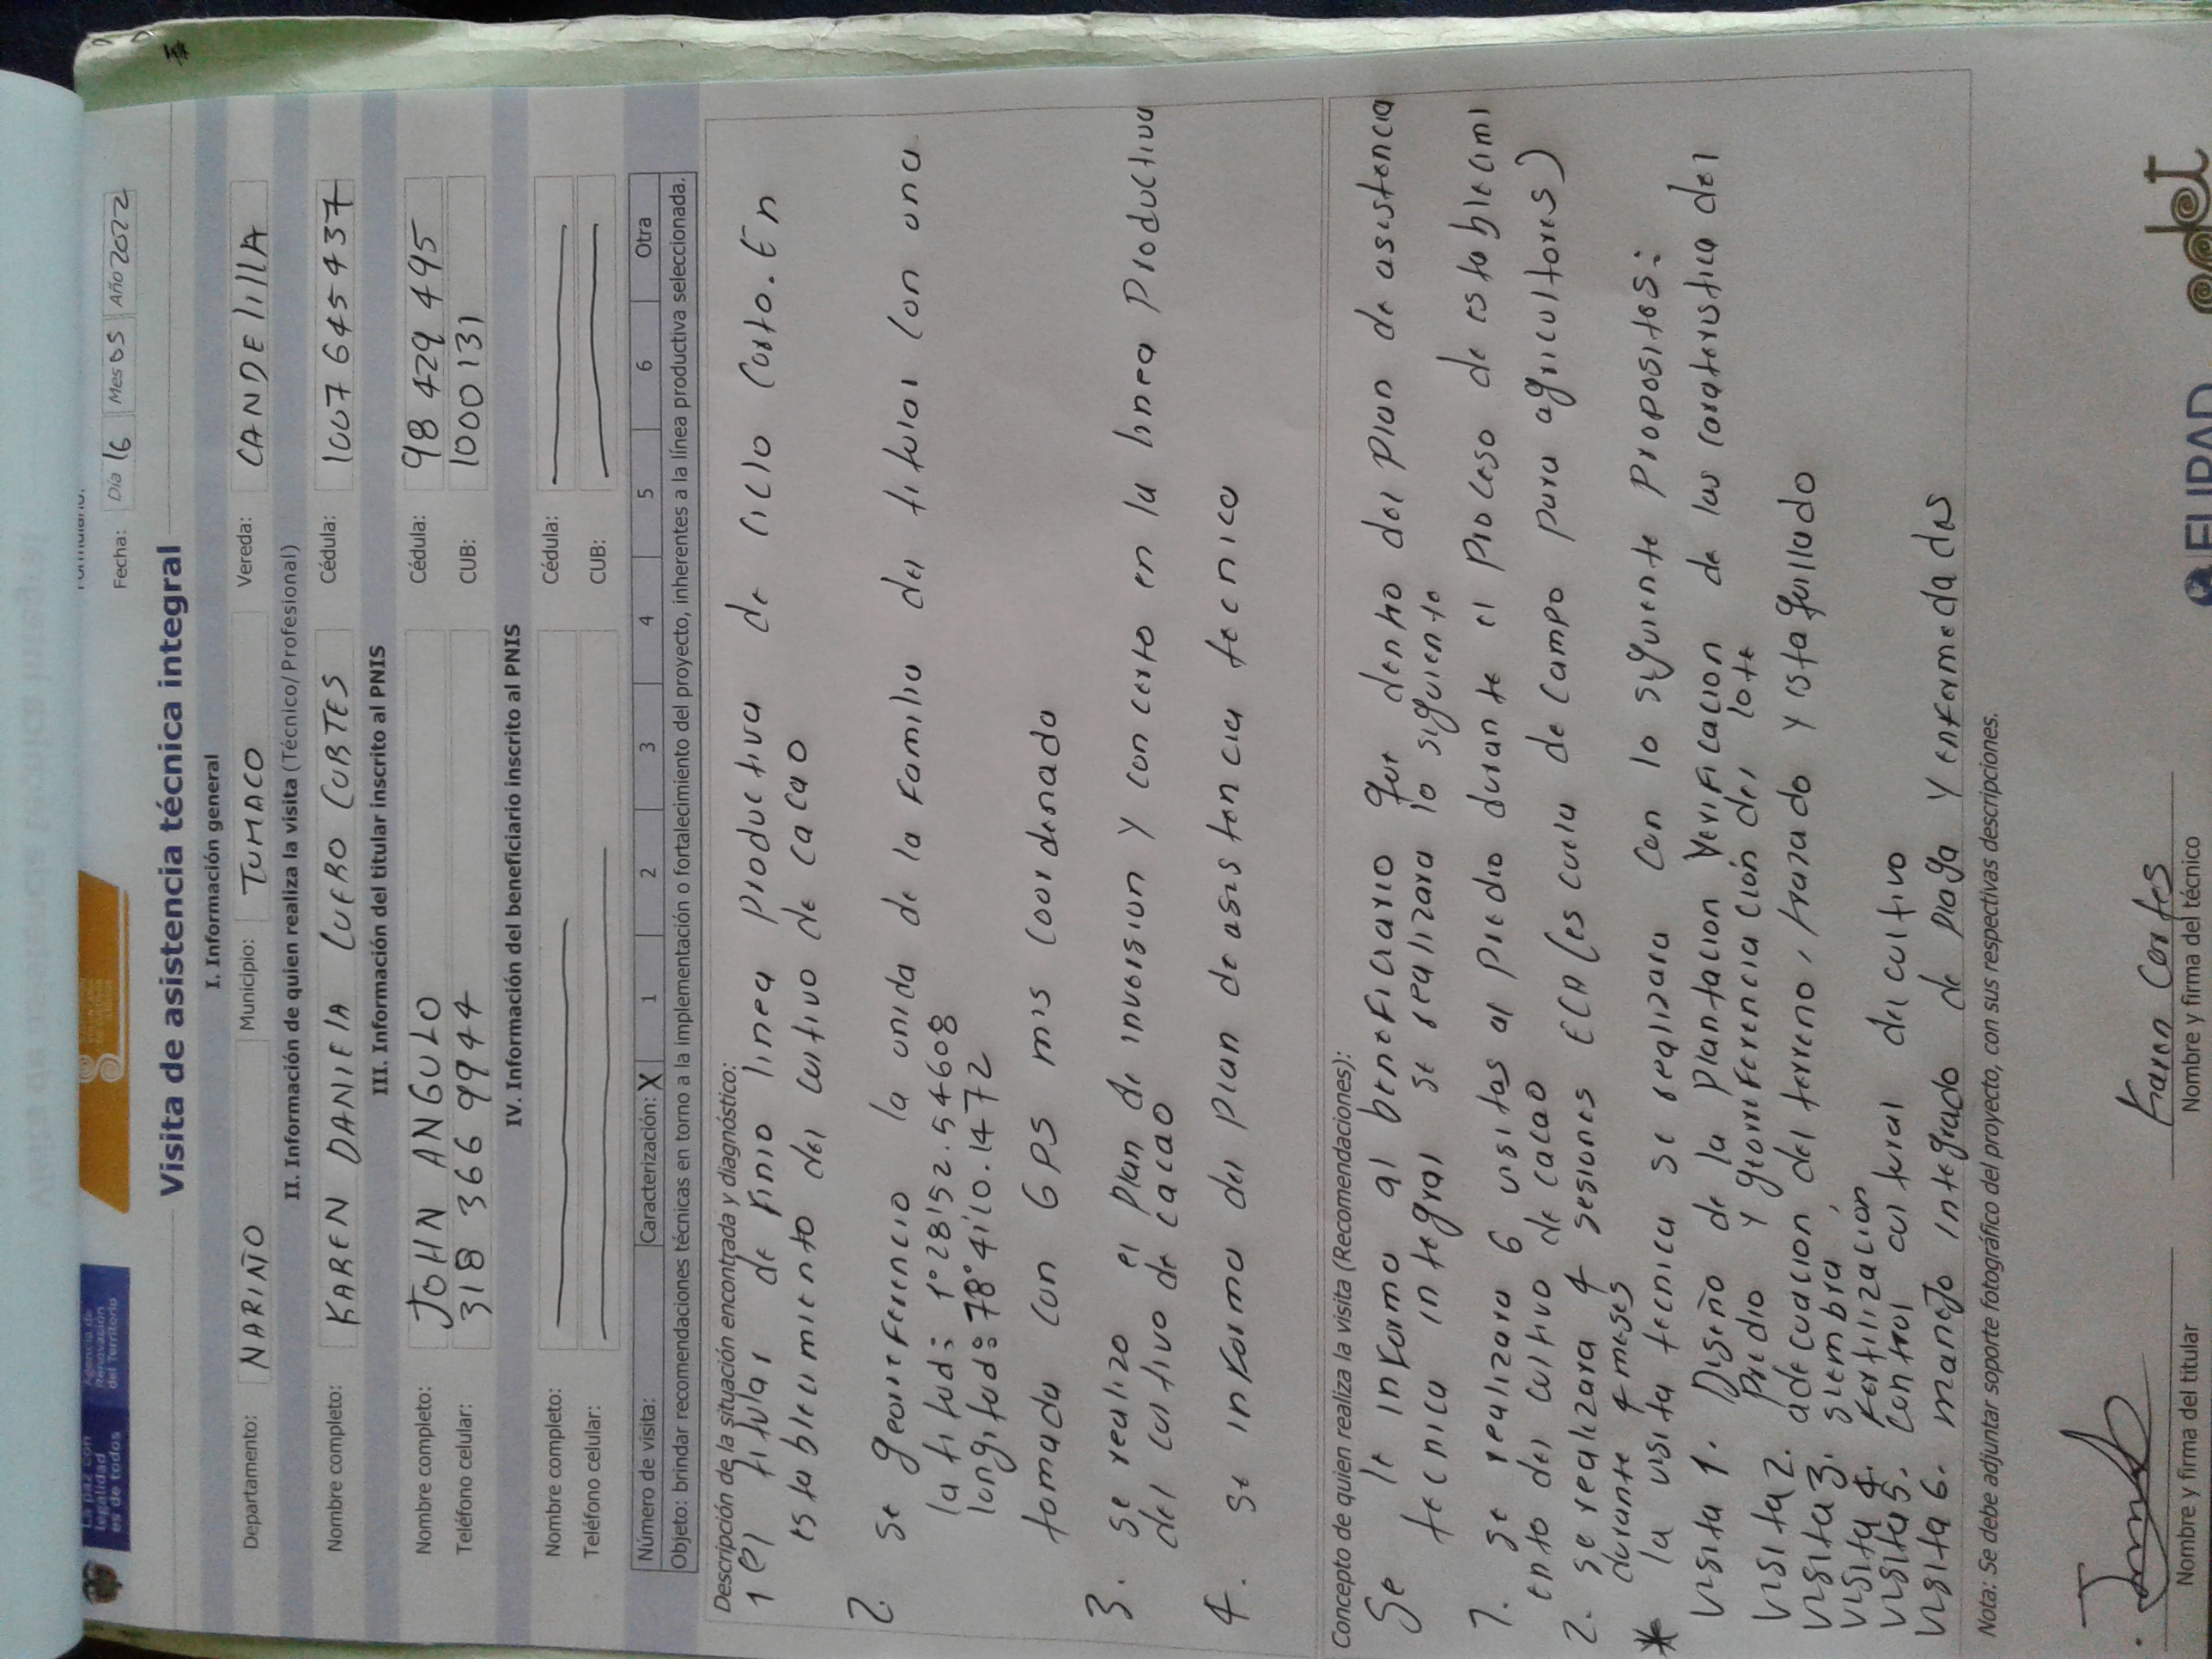 La paz con
legalidad
es de todos
Agencia de
Renovación
del Territorio
Fecha: Día 16 Mes 05 Año 2022
Visita de asistencia técnica integral
I. Información general
Departamento: NARIÑO Municipio: TUMACO Vereda: CANDELILLA
II. Información de quien realiza la visita (Técnico/Profesional)
Nombre completo: KAREN DANIELA CUERO CORTES Cédula: 1007645437
III. Información del titular inscrito al PNIS
Nombre completo: JOHN ANGULO Cédula: 98 429 495
Teléfono celular: 318 366 9944 CUB: 1000131
IV. Información del beneficiario inscrito al PNIS
Nombre completo: Cédula:
Teléfono celular: CUB:
Número de visita: Caracterización: X 1 2 3 4 5 6 Otra
Objeto: brindar recomendaciones técnicas en torno a la implementación o fortalecimiento del proyecto, inherentes a la línea productiva seleccionada.
Descripción de la situación encontrada y diagnóstico:
1 el titular definio linea productiva de ciclo corto. En
establecimiento del cultivo de cacao
2. se georreferencio la unida de la familia del titular con una
latitud: 1°28152.54608
longitud: 78°41'10.1472
tomada con GPS mis coordenada
3. se realizo el plan de inversion y concerto en la linea productiva
del cultivo de cacao
4. se informo del plan de asistencia tecnica
Concepto de quien realiza la visita (Recomendaciones):
Se le informo al beneficiario que dentro del plan de asistencia
tecnica integral se realizara lo siguiente
1. se realizara 6 visitas al predio durante el proceso de establecimi
ento del cultivo de cacao
2. se realizara 4 sesiones ECA (escuela de campo para agricultores)
durante 4 meses
* la visita tecnica se realizara con lo siguiente propositos:
visita 1. Diseño de la plantacion verificacion de las caracteristica del
predio y georreferenciación del lote
visita 2. adecuacion del terreno, trazado y estaquillado
visita 3. siembra
visita 4. fertilización
visita 5. control cultural del cultivo
visita 6. manejo integrado de plaga y enfermedades
Nota: Se debe adjuntar soporte fotográfico del proyecto, con sus respectivas descripciones.
Karen Cortes
Nombre y firma del titular Nombre y firma del técnico